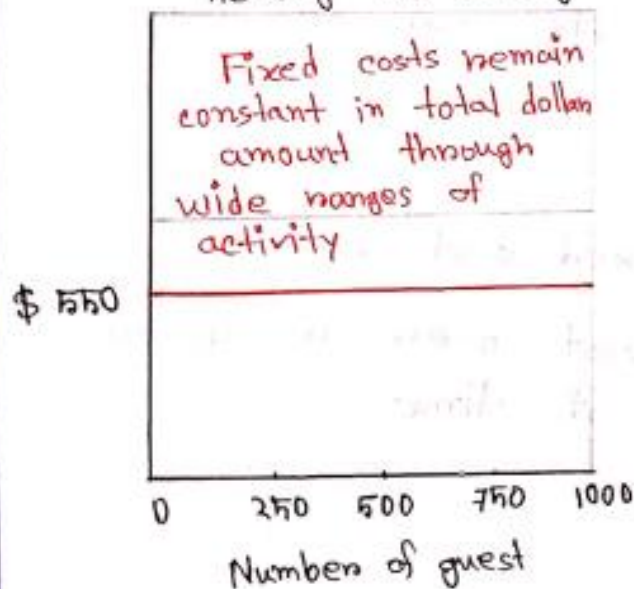 Fixed costs remain
constant in total dollar
amount through
wide ranges of
activity
$ 550
0 250 500 750 1000
Number of guest